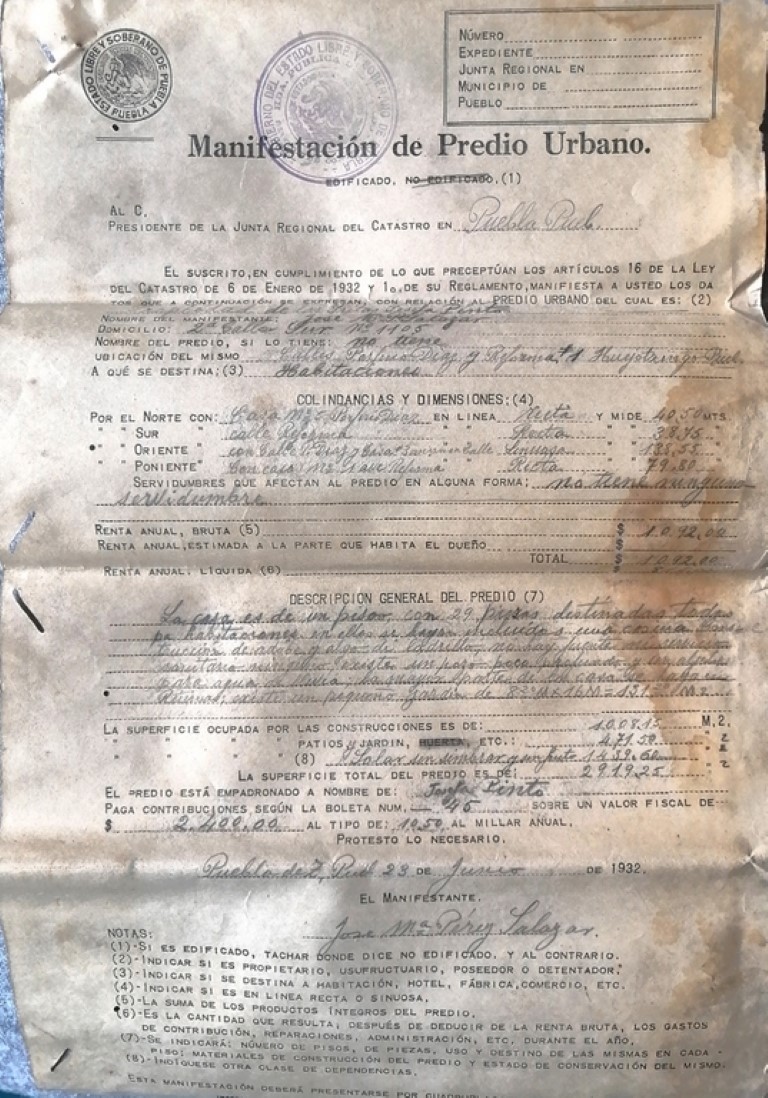 ESTADO LIBRE Y SOBERANO DE PUEBLA
PUEBLA
GOBIERNO DEL ESTADO LIBRE Y SOBERANO DE PUEBLA
NÚMERO
EXPEDIENTE
JUNTA REGIONAL EN
MUNICIPIO DE
PUEBLO
Manifestación de Predio Urbano.
EDIFICADO, NO EDIFICADO,(1)
AL C.
PRESIDENTE DE LA JUNTA REGIONAL DEL CATASTRO EN Puebla Pueb.
EL SUSCRITO, EN CUMPLIMIENTO DE LO QUE PRECEPTÚAN LOS ARTÍCULOS 16 DE LA LEY
DEL CATASTRO DE 6 DE ENERO DE 1932 Y 1o. DE SU REGLAMENTO, MANIFIESTA A USTED LOS DA
TOS QUE A CONTINUACIÓN SE EXPRESAN, CON RELACIÓN AL PREDIO URBANO DEL CUAL ES: (2)
Pinto
NOMBRE DEL MANIFESTANTE: José Salazar
DOMICILIO: 2a Calle Sur No 1105
NOMBRE DEL PREDIO, SI LO TIENE: no tiene
UBICACIÓN DEL MISMO Calles Porfirio Diaz y Reforma # 1 Huejotzingo Pueb.
A QUÉ SE DESTINA:(3) Habitaciones
COLINDANCIAS Y DIMENSIONES:(4)
POR EL NORTE CON: Casa Porfirio Diaz EN LINEA Recta Y MIDE 40.50 MTS.
" " SUR " calle Reforma " " Recta " " 38.75 "
" " ORIENTE " con Calle P. Diaz y Casa " " Sinuosa " "
" " PONIENTE " Con casa Ma " " Recta " " 79.80 "
SERVIDUMBRES QUE AFECTAN AL PREDIO EN ALGUNA FORMA: no tiene ninguna
servidumbre
RENTA ANUAL, BRUTA (5) $ 1.092.00
RENTA ANUAL, ESTIMADA A LA PARTE QUE HABITA EL DUEÑO $
TOTAL $ 1.092.00
RENTA ANUAL. LÍQUIDA (6) $
DESCRIPCION GENERAL DEL PREDIO (7)
La casa es de un piso, con 29 piezas destinadas todas
pa habitaciones en ellas se hayan incluidos una cocina
de adobe y algo de ladrillo, no hay fuente
sanitario ninguno existe un pozo poco profundo
para agua de lluvia; la mayor parte de la casa se haya en
existe un pequeño jardin de
LA SUPERFICIE OCUPADA POR LAS CONSTRUCCIONES ES DE: 1.008.15 M,2,
" " " " PATIOS, JARDIN, HUERTA, ETC.: 471.50 " 2
" " " " (8) Solar sin sembrar y sin fruto 1439.60 " 2
LA SUPERFICIE TOTAL DEL PREDIO ES DE: 2919.25 " 2
EL PREDIO ESTÁ EMPADRONADO A NOMBRE DE: Josefa Pinto
PAGA CONTRIBUCIONES SEGÚN LA BOLETA NUM. 45 SOBRE UN VALOR FISCAL DE
$ 2.400.00 AL TIPO DE: 10.50 AL MILLAR ANUAL.
PROTESTO LO NECESARIO.
Puebla de Z, Pueb 23 DE Junio DE 1932.
EL MANIFESTANTE.
Jose Ma Pérez Salazar.
NOTAS:
(1)-SI ES EDIFICADO, TACHAR DONDE DICE NO EDIFICADO. Y AL CONTRARIO.
(2)-INDICAR SI ES PROPIETARIO, USUFRUCTUARIO, POSEEDOR O DETENTADOR.
(3)-INDICAR SI SE DESTINA A HABITACIÓN, HOTEL, FÁBRICA, COMERCIO, ETC.
(4)-INDICAR SI ES EN LINEA RECTA O SINUOSA.
(5)-LA SUMA DE LOS PRODUCTOS ÍNTEGROS DEL PREDIO.
(6)-ES LA CANTIDAD QUE RESULTA, DESPUES DE DEDUCIR DE LA RENTA BRUTA, LOS GASTOS
DE CONTRIBUCIÓN, REPARACIONES, ADMINISTRACIÓN, ETC, DURANTE EL AÑO.
(7)-SE INDICARÁ; NÚMERO DE PISOS, DE PIEZAS, USO Y DESTINO DE LAS MISMAS EN CADA
PISO; MATERIALES DE CONSTRUCCIÓN DEL PREDIO Y ESTADO DE CONSERVACIÓN DEL MISMO.
(8)-INDÍQUESE OTRA CLASE DE DEPENDENCIAS.
ESTA MANIFESTACIÓN DEBERÁ PRESENTARSE POR